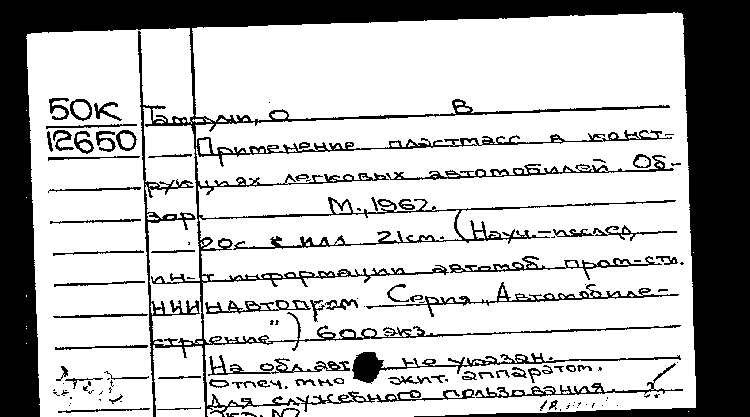 50К
12650
В
О
Применение пластмасс в конст-
рукциях легковых автомобилей. Об-
зор. М., 1967.
20с. с илл 21см. (Науч.-исслед.
ин-т информации автомоб. пром-сти.
НИИНАвтопром. Серия "Автомобиле-
строение") 600экз.
На обл. авт не указан.
Отпеч. мно жит. аппаратом.
Для служебного пользования.